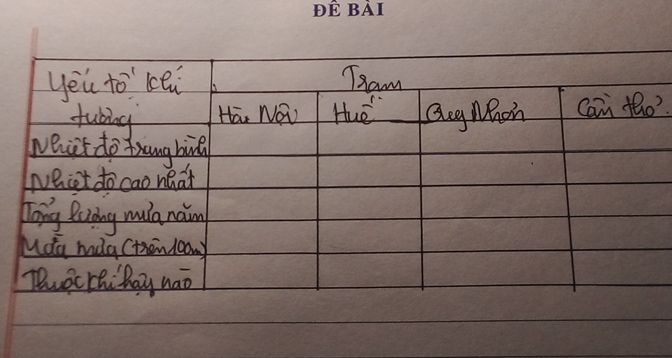 ĐỀ BÀI
Yếu tố khí Trạm
tượng Hà Nội Huế Quy Nhơn Cần thơ
Nhiệt độ trung bình
Nhiệt độ cao nhất
Tổng lượng mưa năm
Mùa mưa (trên 100mm)
Thuộc khí hậu nào